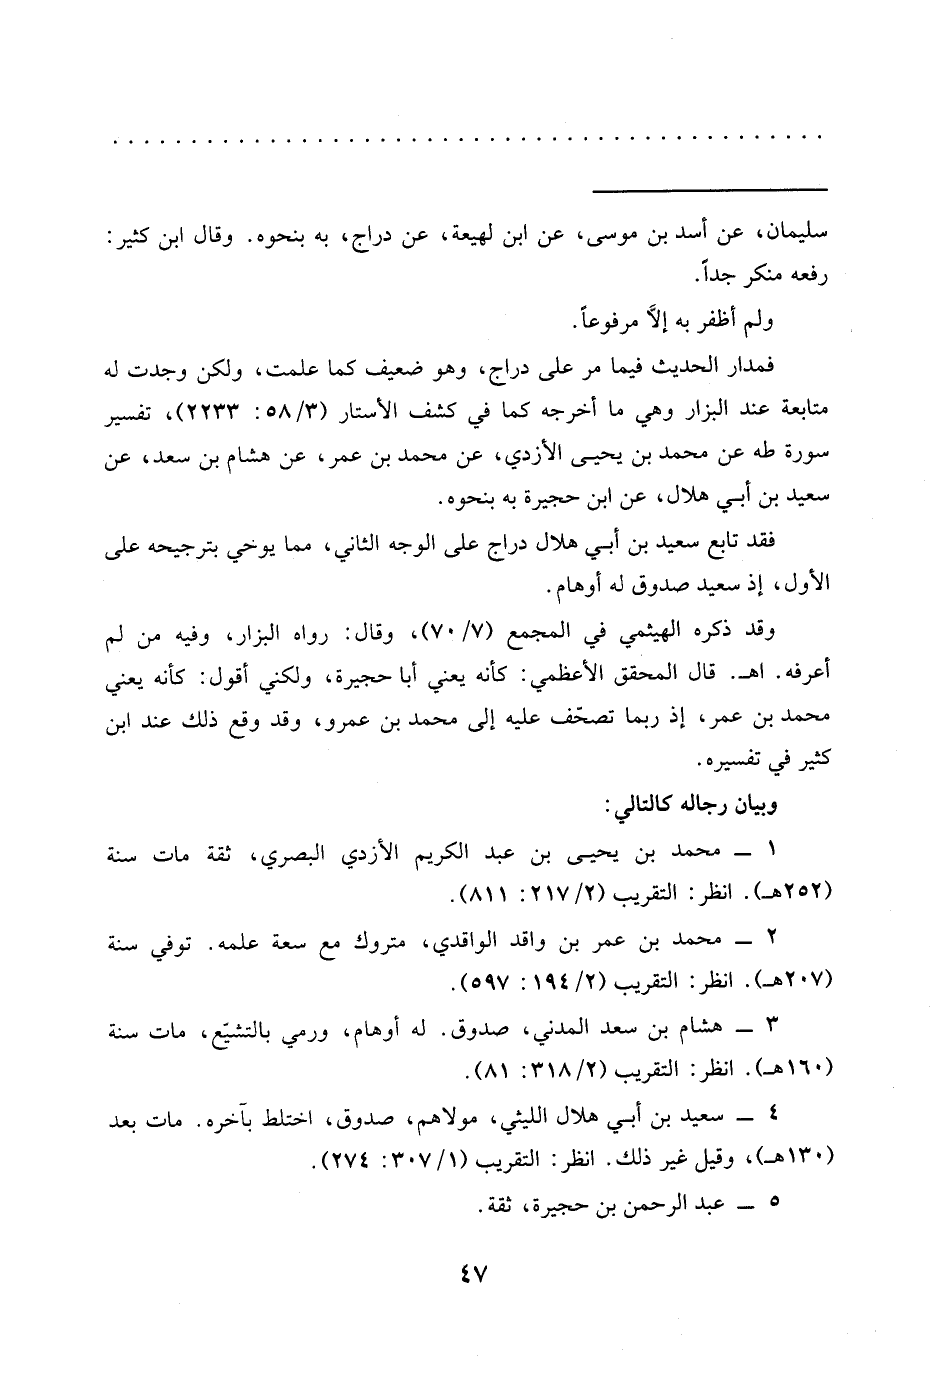 . . . . . . . . . . . . . . . . . . . . . . . . . . . . . . . . . . . . . . . . . . . . . .
سليمان، عن أسد بن موسى، عن ابن لهيعة، عن دراج، به بنحوه. وقال ابن كثير:
رفعه منكر جداً.
ولم أظفر به إلاَّ مرفوعاً.
فمدار الحديث فيما مر على دراج، وهو ضعيف كما علمت، ولكن وجدت له
متابعة عند البزار وهي ما أخرجه كما في كشف الأستار (٥٨/٣: ٢٢٣٣)، تفسير
سورة طه عن محمد بن يحيـى الأزدي، عن محمد بن عمر، عن هشام بن سعد، عن
سعيد بن أبـي هلال، عن ابن حجيرة به بنحوه.
فقد تابع سعيد بن أبـي هلال دراج على الوجه الثاني، مما يوحي بترجيحه على
الأول، إذ سعيد صدوق له أوهام.
وقد ذكره الهيثمي في المجمع (٧٠/٧)، وقال: رواه البزار، وفيه من لم
أعرفه. اهـ. قال المحقق الأعظمي: كأنه يعني أبا حجيرة، ولكني أقول: كأنه يعني
محمد بن عمر، إذ ربما تصحّف عليه إلى محمد بن عمرو، وقد وقع ذلك عند ابن
كثير في تفسيره.
وبيان رجاله كالتالي:
١ ــ محمد بن يحيـى بن عبد الكريم الأزدي البصري، ثقة مات سنة
(٢٥٢هـ). انظر: التقريب (٢١٧/٢: ٨١١).
٢ ــ محمد بن عمر بن واقد الواقدي، متروك مع سعة علمه. توفي سنة
(٢٠٧هـ). انظر: التقريب (١٩٤/٢: ٥٩٧).
٣ ــ هشام بن سعد المدني، صدوق. له أوهام، ورمي بالتشيّع، مات سنة
(١٦٠هـ). انظر: التقريب (٣١٨/٢: ٨١).
٤ ــ سعيد بن أبـي هلال الليثي، مولاهم، صدوق، اختلط بآخره. مات بعد
(١٣٠هـ)، وقيل غير ذلك. انظر: التقريب (٣٠٧/١: ٢٧٤).
٥ ــ عبد الرحمن بن حجيرة، ثقة.
٤٧